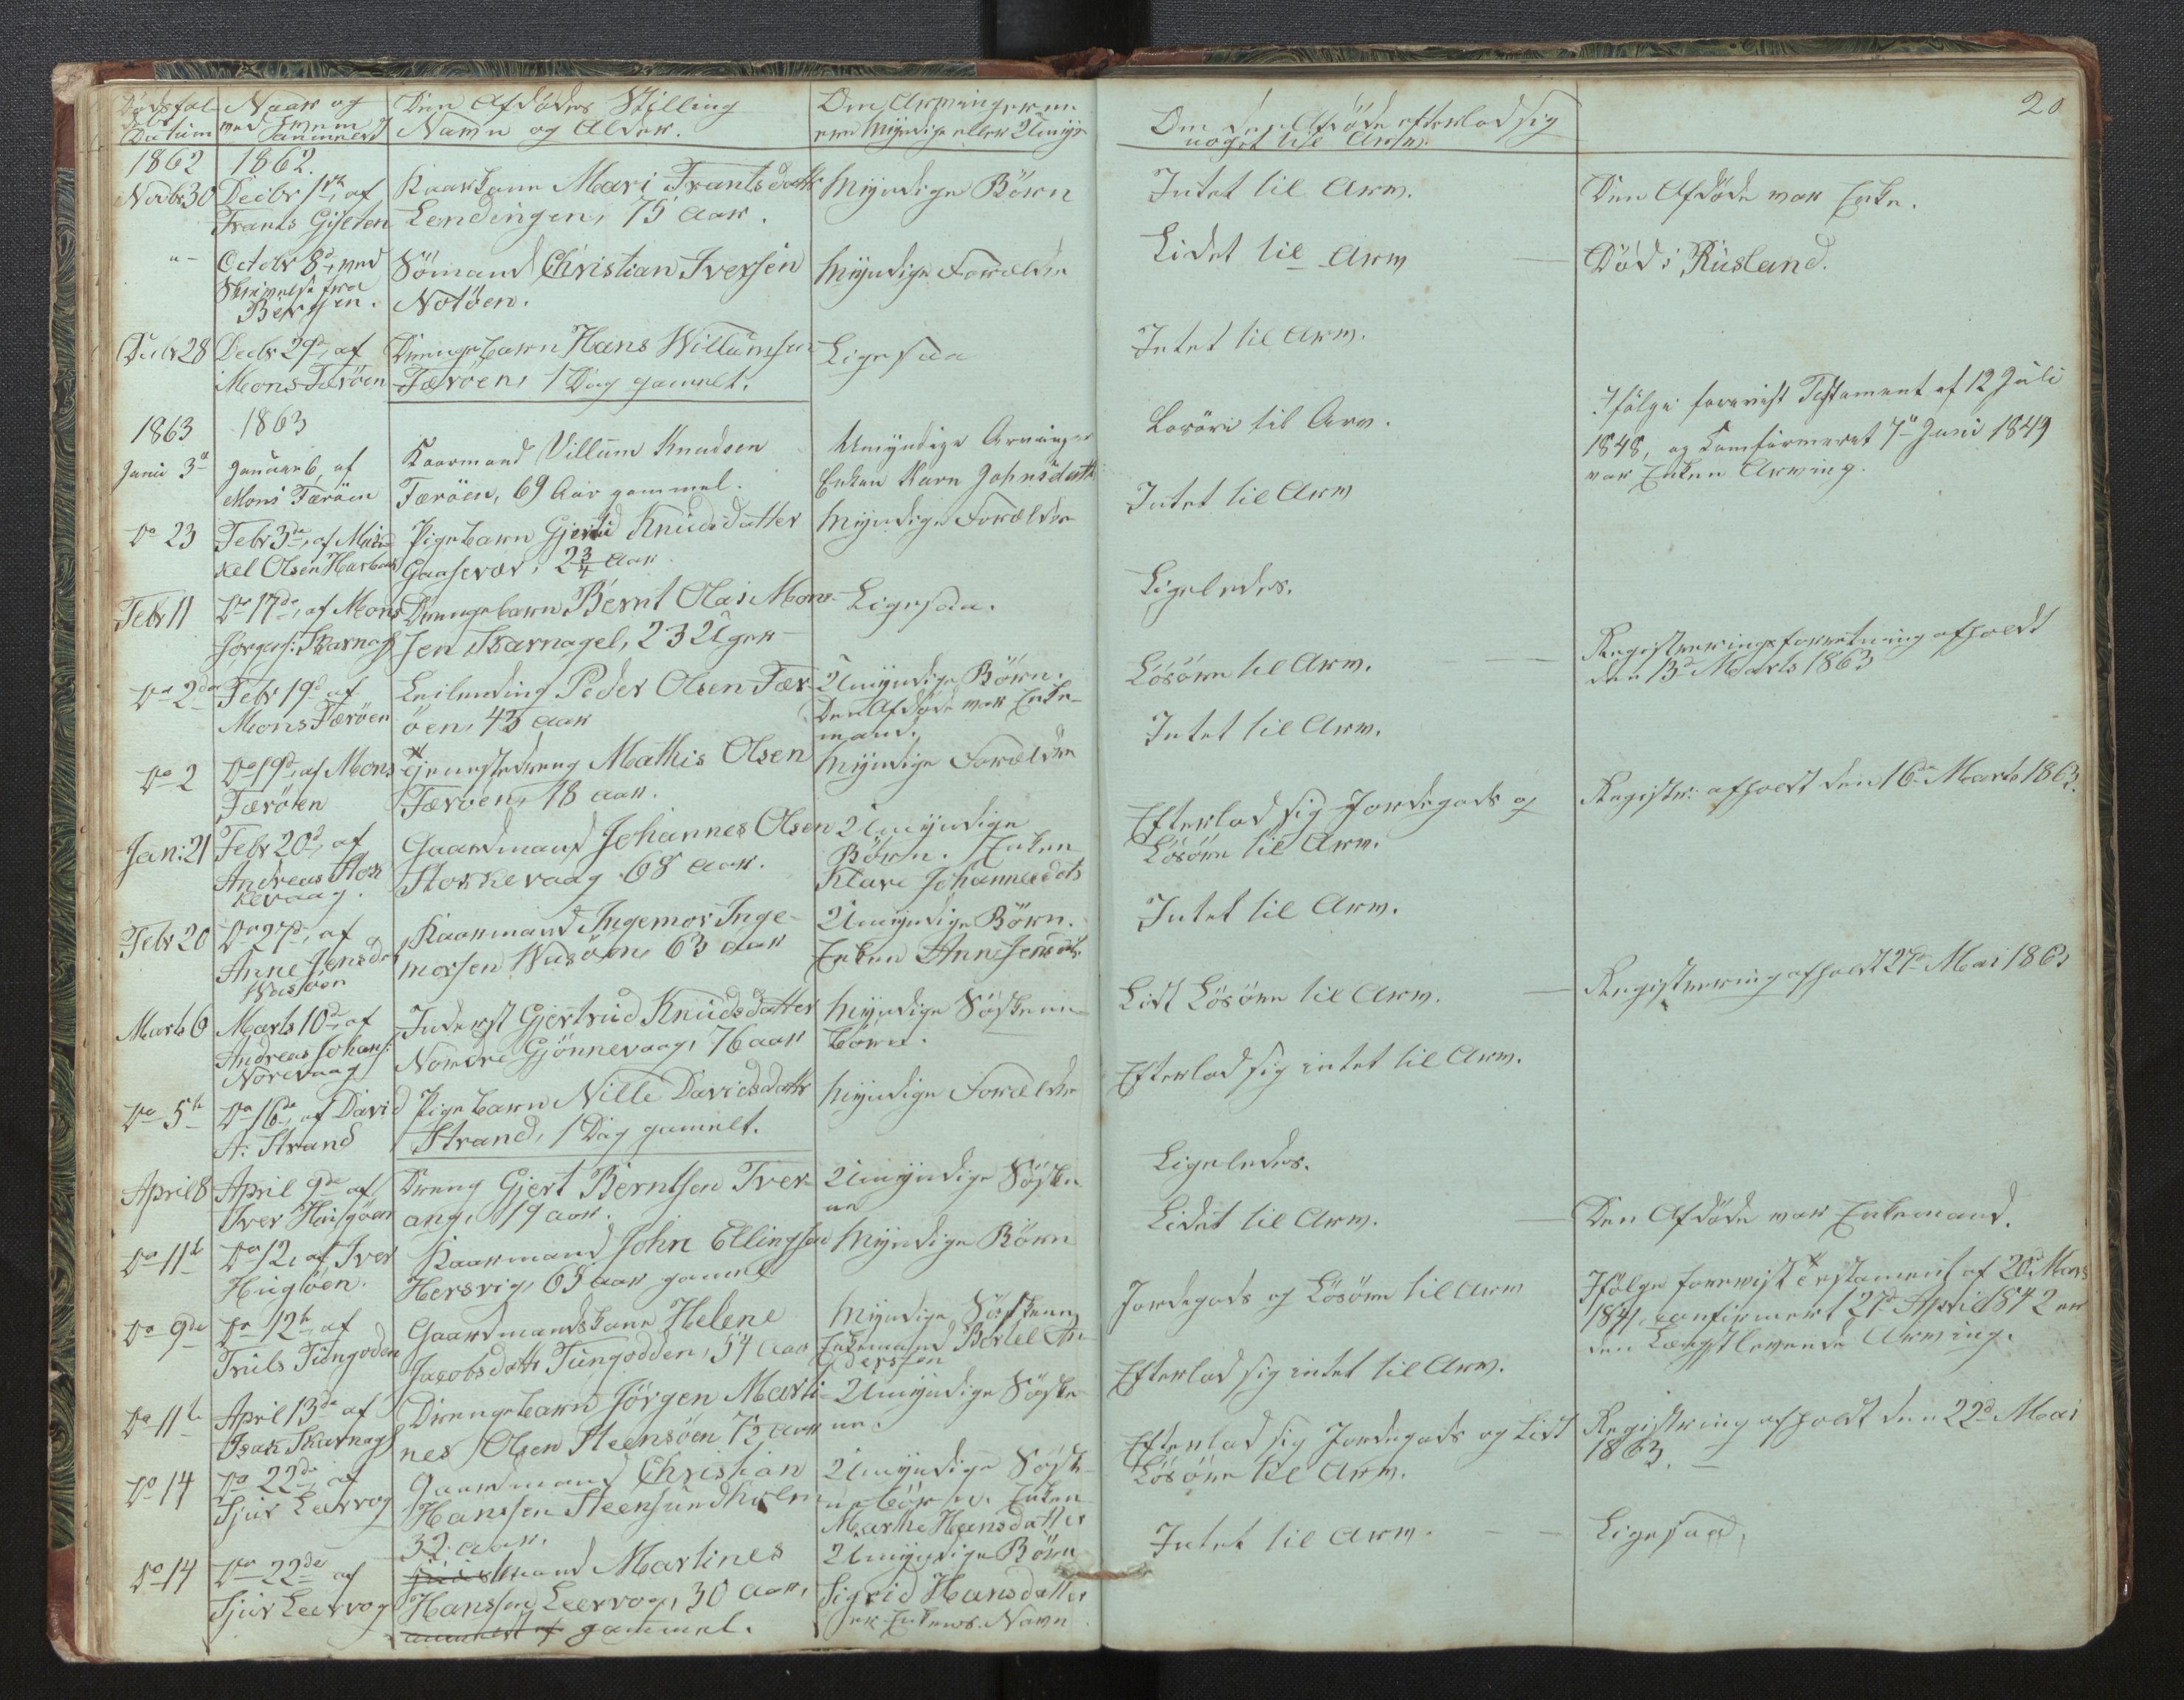 Dødsfal-
dets
Datum
Naar og
ved hvem
anmeldt
Den Afdødes Stilling
Navn og Alder.
Om Arvingerne
ere Myndige eller Umyn
Om den Afdøde efterlod sig
noget til Arv.
20
1862
1862.
Novbr 30
Decbr 1ste, af
Frants Gjseten
Kaarkone Mari Frantsdattr
Lendingen, 75 Aar.
Myndige Børn
Intet til Arv.
Den Afdøde var Enke.
"-
Octobr 8de, ved
Skrivelse fra
Bergen.
Sömand Christian Iversen
Notöen.
Myndige Forældre
Lidet til Arv
Död i Rusland.
Decbr 28
Decbr 29de, af
Mons Færöen
Drengebarn Hans Willumsen
Færöen, 1 Dag gammelt.
Ligesaa
Intet til Arv.
1863
1863
Janu 3de
Januar 6, af
Mons Færöen
Kaarmand Villum Knudsen
Færöen, 69 Aar gammel.
Umyndige Arvinger
Enken Karn Johnsdatt
Losöre til Arv.
Ifølge forevist Testament af 12 Juli
1848, og Confirmeret 7de Juni 1849
var Enken Arving.
Do 23
Febr 3de, af Mik-
kel Olsen Harbak
Pigebarn Gjertrud Knudsdatter
Gaasevær, 2 3/4 Aar.
Myndige Forældre
Intet til Arv
Febr 11
Do 17de, af Mons
Jörgens: Skarnagl
Drengebarn Bernt Olai Mon-
sen Skarnagel, 23 Uger
Ligesaa.
Ligeledes.
Do 2de
Febr 19de af
Mons Færöen
Leilending Peder Olsen Fær-
öen, 43 Aar
Umyndige Börn.
Den Afdøde var Enke-
mand.
Lösöre til Arv.
Registreringsforretning afholdt
den 13de Marts 1863
Do 2
Do 19de, af Mons
Færöen
Tjenestedreng Mathis Olsen
Færoen, 18 Aar.
Myndige Forældre
Intet til Arv.
Jan: 21
Febr 20de, af
Andreas Stok
kevaag.
Gaardmand Johannes Olsen
Storkevaag 68 Aar.
Umyndige
Börn. Enken
Klare Johannesdtr
Efterlod sig Jordegods og
Lösöre til Arv.
Registr: afholdt den 16de Marts 1863.
Febr 20
Do 27de, af
Anne Jensdr
Wasöen
Kaarmand Ingemor Inge-
morsen Wasöen, 63 Aar
Umyndige Börn.
Enken Anne Jensdtr
Intet til Arv.
Marts 6
Marts 10de, af
Andreas Johans:
Norevaag
Inderst Gjertrud Knudsdatter
Nordre Gjönnevaag, 76 Aar
Myndige Söskende-
börn.
Lidt Lösöre til Arv.
Registrering afholdt 27de Mai 1863
Do 5te
Do 16de, af David
A: Strand
Pigebarn Nille Davidsdattr
Strand, 1 Dag gamelt.
Myndige Forældre
Efterlod sig intet til Arv.
April 8
April 9de af
Iver Huglöen
Dreng Gjert Berntsen Tver-
ang, 19 Aar.
Umyndige Sösken-
ne
Ligeledes.
Do 11te
Do 12, af Iver
Huglöen.
Kaarmand John Ellingsen
Hersvig, 65 Aar gammel
Myndige Börn
Lidet til Arv.
Den Afdøde var Enkemand.
Do 9de
Do 12te, af
Truls Tungoden
Gaardmandskone Helene
Jacobsdattr Tungodden, 54 Aar
Myndige Söskenne
Enkemand Bertel An-
dersen
Jordegods og Lösöre til Arv
Ifölge forevist Testament af 20de Mars
1841, confirmert 27de April 1842 er
den Længstlevende Arving.
Do 11te
April 13de af
Isak Skarnagl
Drengebarn Jörgen Marti-
nes Olsen Steensöen 7½ Aar
Umyndige Söske-
ne.
Efterlod sig intet til Arv.
Do 14
Do 22de af
Sjur Leervog
Gaardmand Christian
Hanssen Steensundholm
32 Aar.
Umyndige Sösk-
nebörn. Enken
Marthe Hansdatter
Efterlod sig Jordegods og Lidt
Lösöre til Arv.
Registring afholdt den 22de Mai
1863.
Do 14
Do 22de af
Sjur Leervog
mand Martines
Hanssen Leervog, 30 Aar,
gammel.
Umyndige Börn
Sigrid Hansdatter
er Enkens Navn
Intet til Arv.
Ligesaa,